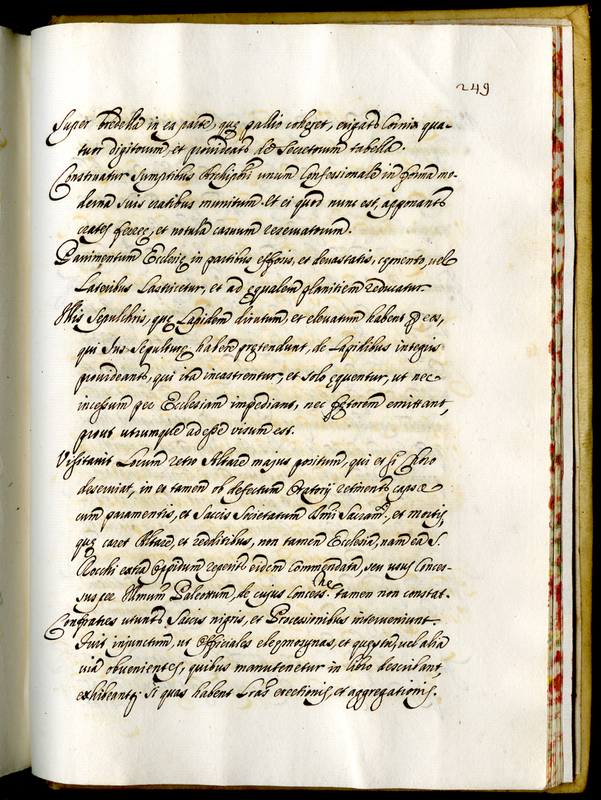 249
Super bredella in ea parte, quę pallio cohęret, erigatʳ Cornix qua-
tuor digitorum, et provideatʳ de Secretorum tabella.
Construatur Sumptibus Archipbri unum Confessionale in forma mo-
derna suis cratibus munitum. Et ei quod nunc est, apponantʳ
crates ferreę, et notula casuum reservatorum.
Pavimentum Ecclesię in partibus effossis, et devastatis, cęmento, vel
Lateribus Lastricetur, et ad ęqualem planitiem reducatur.
Illis Sepulchris, quę Lapidem dirutum, et elevatum habent per eos,
qui Jus Sepulturę habere prętendunt, de Lapidibus integris
provideantʳ, qui ita incastrentur, et solo ęquentur, ut nec
incessum per Ecclesiam impediant, nec fętorem emittant,
prout utrumque adesse visum est.
Visitavit Locum retro Altare majus positum, qui et si Choro
deserviat, in eo tamen ob defectum Oratorij retinentʳ capsæ
cum paramentis, et Saccis Societatum Smi Sacramti, et mortis,
quę caret Altare, et redditibus, non tamen Ecclesia, nam ea S.
Rocchi extra Oppidum regentʳ eidem commendata, seu usus conces-
sus per Illmum Paleorum, de cujus Concess.ne tamen non constat.
Confratres utuntʳ Saccis nigris, et Processionibus interveniunt.
Fuit injunctum, ut Officiales eleęmosynas, et quęstus, vel alia
via obvenientes, quibus manutenetur in libro describant,
exhibeantq; si quas habent Lras erectionis, et aggregationis.